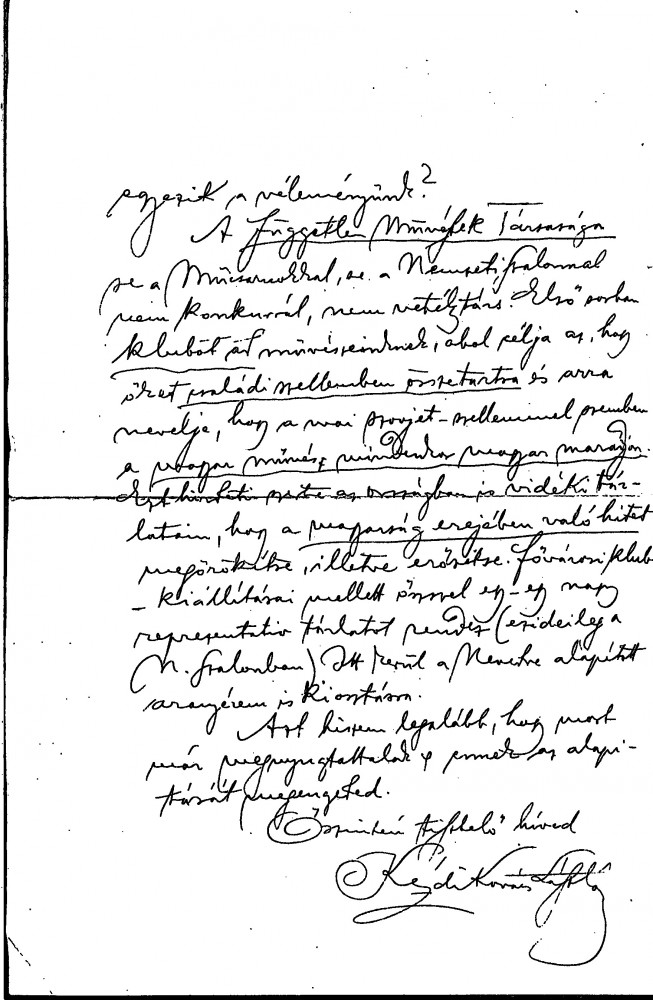 egyezik a véleményünk?
A Független Művészek Társasága
se a Műcsarnokkal, se a Nemzeti Szalonnal
nem konkurrál, nem vetélytárs. Első sorban
klubot ád művészeinknek, ahol célja az, hogy
őket családi szellemben összetartsa és arra
nevelje, hogy a mai szovjet-szellemmel szemben
a magyar művész mindenkor magyar maradjon.
Ezt hirdeti szerte az országban is vidéki tár-
latain, hogy a magyarság erejében való hitet
megörökítse, illetve erősítse. Fővárosi klub-
-kiállításai mellett ősszel egy-egy nagy
representativ tárlatot rendez (ezideileg a
N. Szalonban) Itt kerül a Nevedre alapított
aranyérem is kiosztásra.
Azt hiszem legalább, hogy most
már megnyugtattalak s ennek az alapí-
tását megengeded.
Őszintén tisztelő híved
Kézdi Kovács László